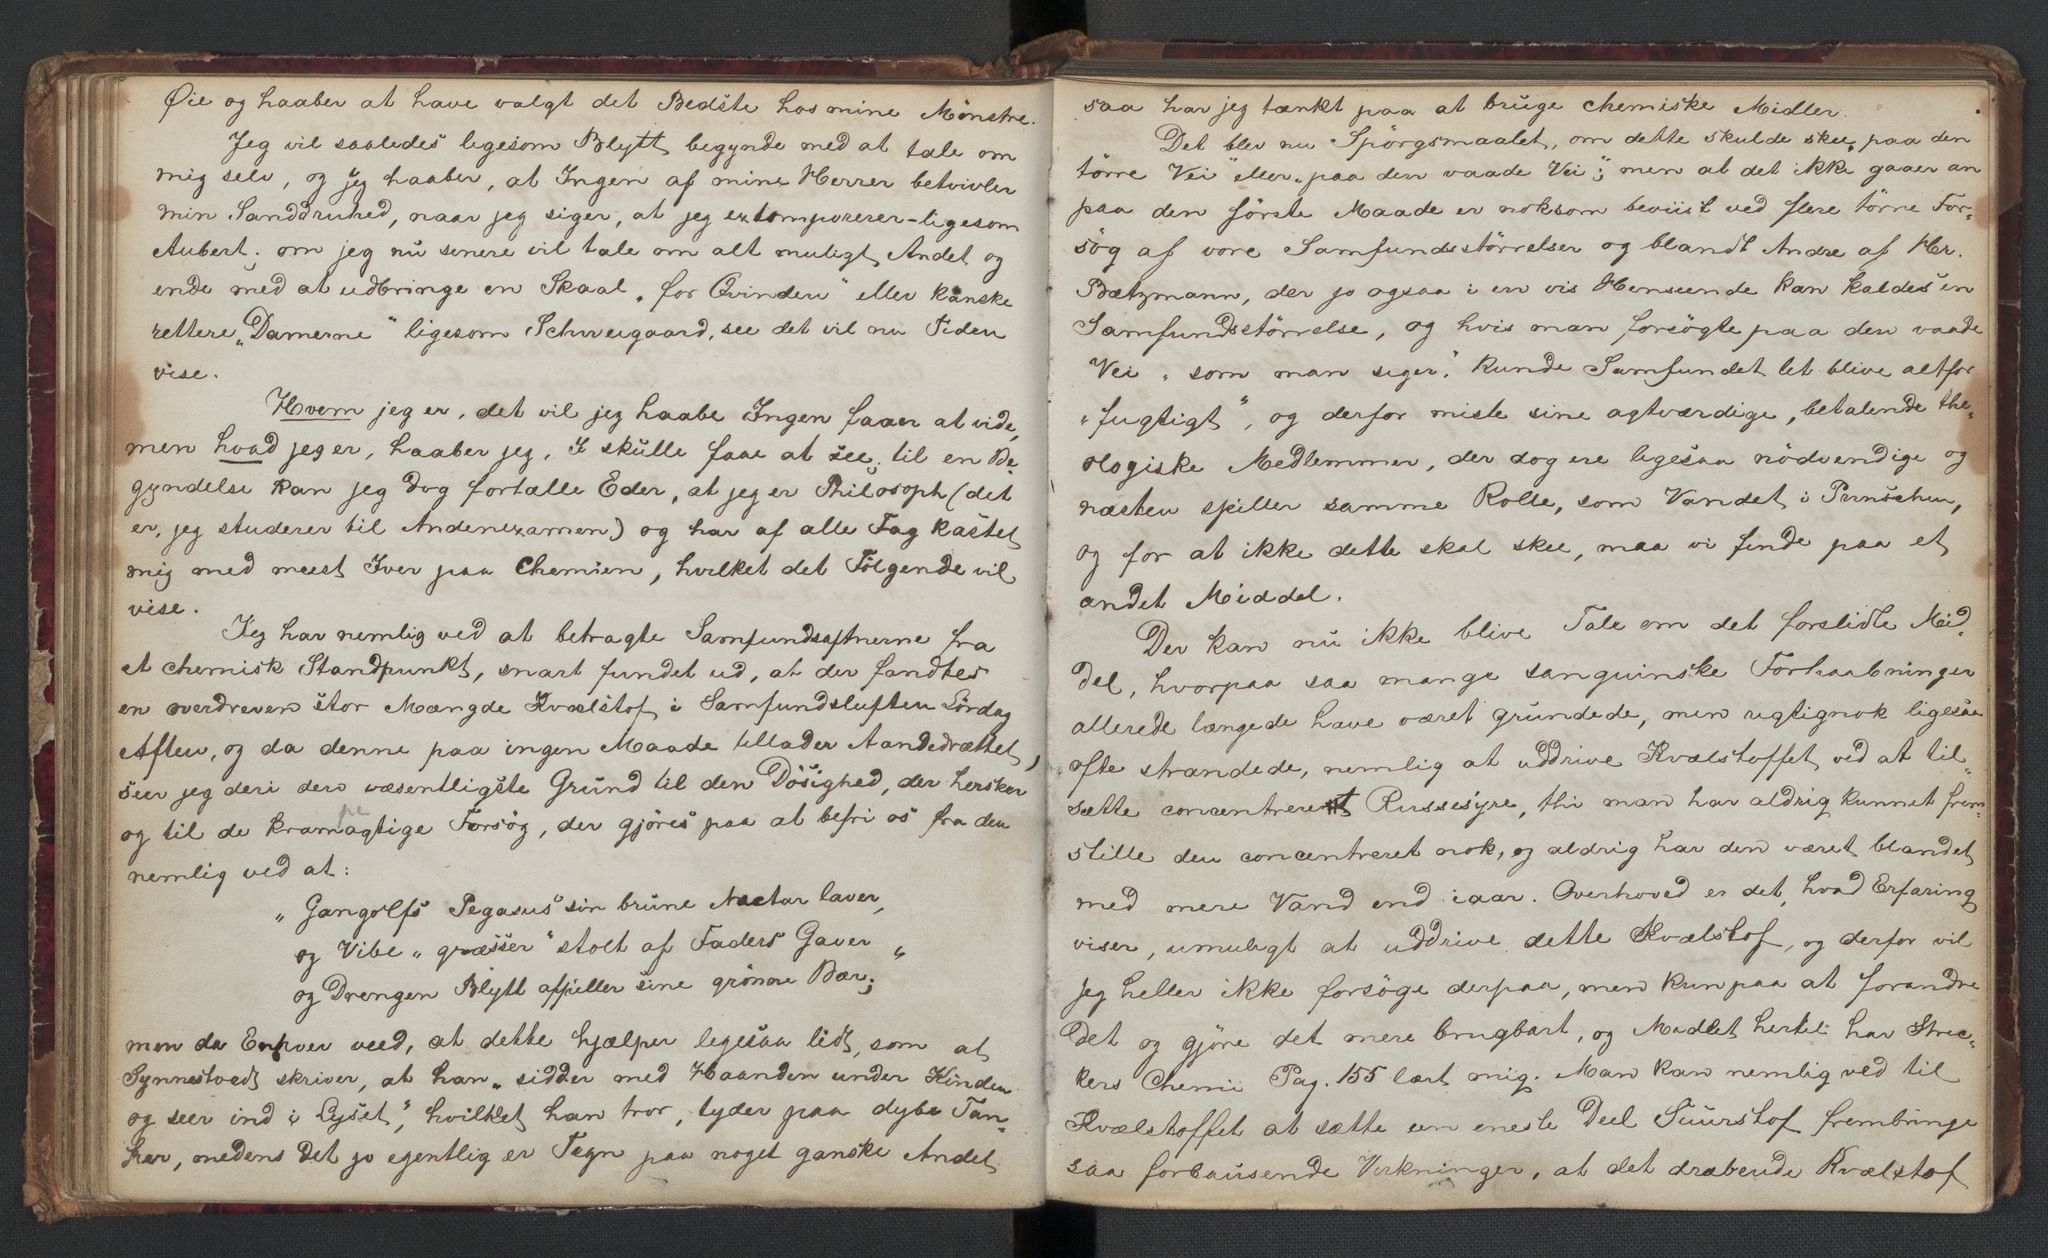 Øie og haaber at have valgt det Bedste hos mine Mönstre.
Jeg vil saaledes ligesom Blytt begynde med at tale om
mig selv, og jeg haaber, at Ingen af mine Herrer betvivler
min Sanddruhed, naar jeg siger, at jeg extemporerer - ligesom
Aubert; om jeg nu senere vil tale om alt muligt Andet og
ende med at udbringe en Skaal „for Qvinden" eller kanske
rettere „Damerne" ligesom Schweigaard, see det vil nu Tiden
vise.
Hvem jeg er, det vil jeg haabe Ingen faaer at vide,
men hvad jeg er, haaber jeg, I skulle faae at see; til en Be-
gyndelse kan jeg dog fortælle Eder, at jeg er Philosoph (det
er, jeg studerer til Andenexamen) og har af alle Fag kastet
mig med meest Iver paa Chemien, hvilket det Fölgende vil
vise.
Jeg har nemlig ved at betragte Samfundsaftnerne fra
et chemisk Standpunkt, snart fundet ud, at der fandtes
en overdreven stor Mængde Kvælstof i Samfundsluften Lördag
Aften, og da denne paa ingen Maade tillader Aandedrættet,
seer jeg deri den væsentligste Grund til den Dösighed, der hersker
og til de kramagtige Forsög, der gjöres paa at befri os fra den
nemlig ved at:
„Gangolfs Pegasus sin brune Nectar laver,
og Vibe „græsser" stolt af Faders Gaver
og Drengen Blytt afpiller sine grönne Bær; "
men da Enhver veed, at dette hjælper ligesaa lidt, som at
Synnestvedt skriver, at han „sidder med Haanden under Kinden
og seer ind i Lyset", hvilket han tror, tyder paa dybe Tan-
ker, medens det jo egentlig er Tegn paa noget ganske Andet
saa har jeg tænkt paa at bruge chemiske Midler.
Det blev nu Spörgsmaalet, om dette skulde skee „paa den
törre Vei" eller „paa den vaade Vei"; men at det ikke gaaer an
paa den förste Maade er noksom beviist ved flere törre For-
sög af vore Samfundsstörrelser og blandt Andre af Hr.
Bætzmann, der jo ogsaa i en vis Henseende kan kaldes en
Samfundsstörrelse, og hvis man forsögte paa den vaade
Vei „som man siger", kunde Samfundet let blive altfor
„fugtigt", og derfor miste sine agtværdige, betalende the-
ologiske Medlemmer, der dog ere ligesaa nödvendige og
næsten spiller samme Rolle, som Vandet i Punschen,
og for at ikke dette skal skee, maa vi finde paa et
andet Middel.
Der kan nu ikke blive Tale om det forslidte Mid-
del, hvorpaa saa mange sanguinske Forhaabninger
allerede længede have været grundede, men rigtignok ligesaa
ofte strandede, nemlig at uddrive Kvælstoffet ved at til-
sætte concentreret Russesyre, thi man har aldrig kunnet frem-
stille den concentreret nok, og aldrig har den været blandet
med mere Vand end iaar. Overhoved er det, hvad Erfaring
viser, umuligt at uddrive dette Kvælstof, og derfor vil
jeg heller ikke forsöge derpaa, men kun paa at forandre
Det og gjöre det mere brugbart, og Midlet hertil har Strec-
kers Chemie Pag. 155 lært mig. Man kan nemlig ved til
Kvælstoffet at sætte een eneste Deel Suurstof frembringe
saa forbausende Virkninger, at det dræbende Kvælstof